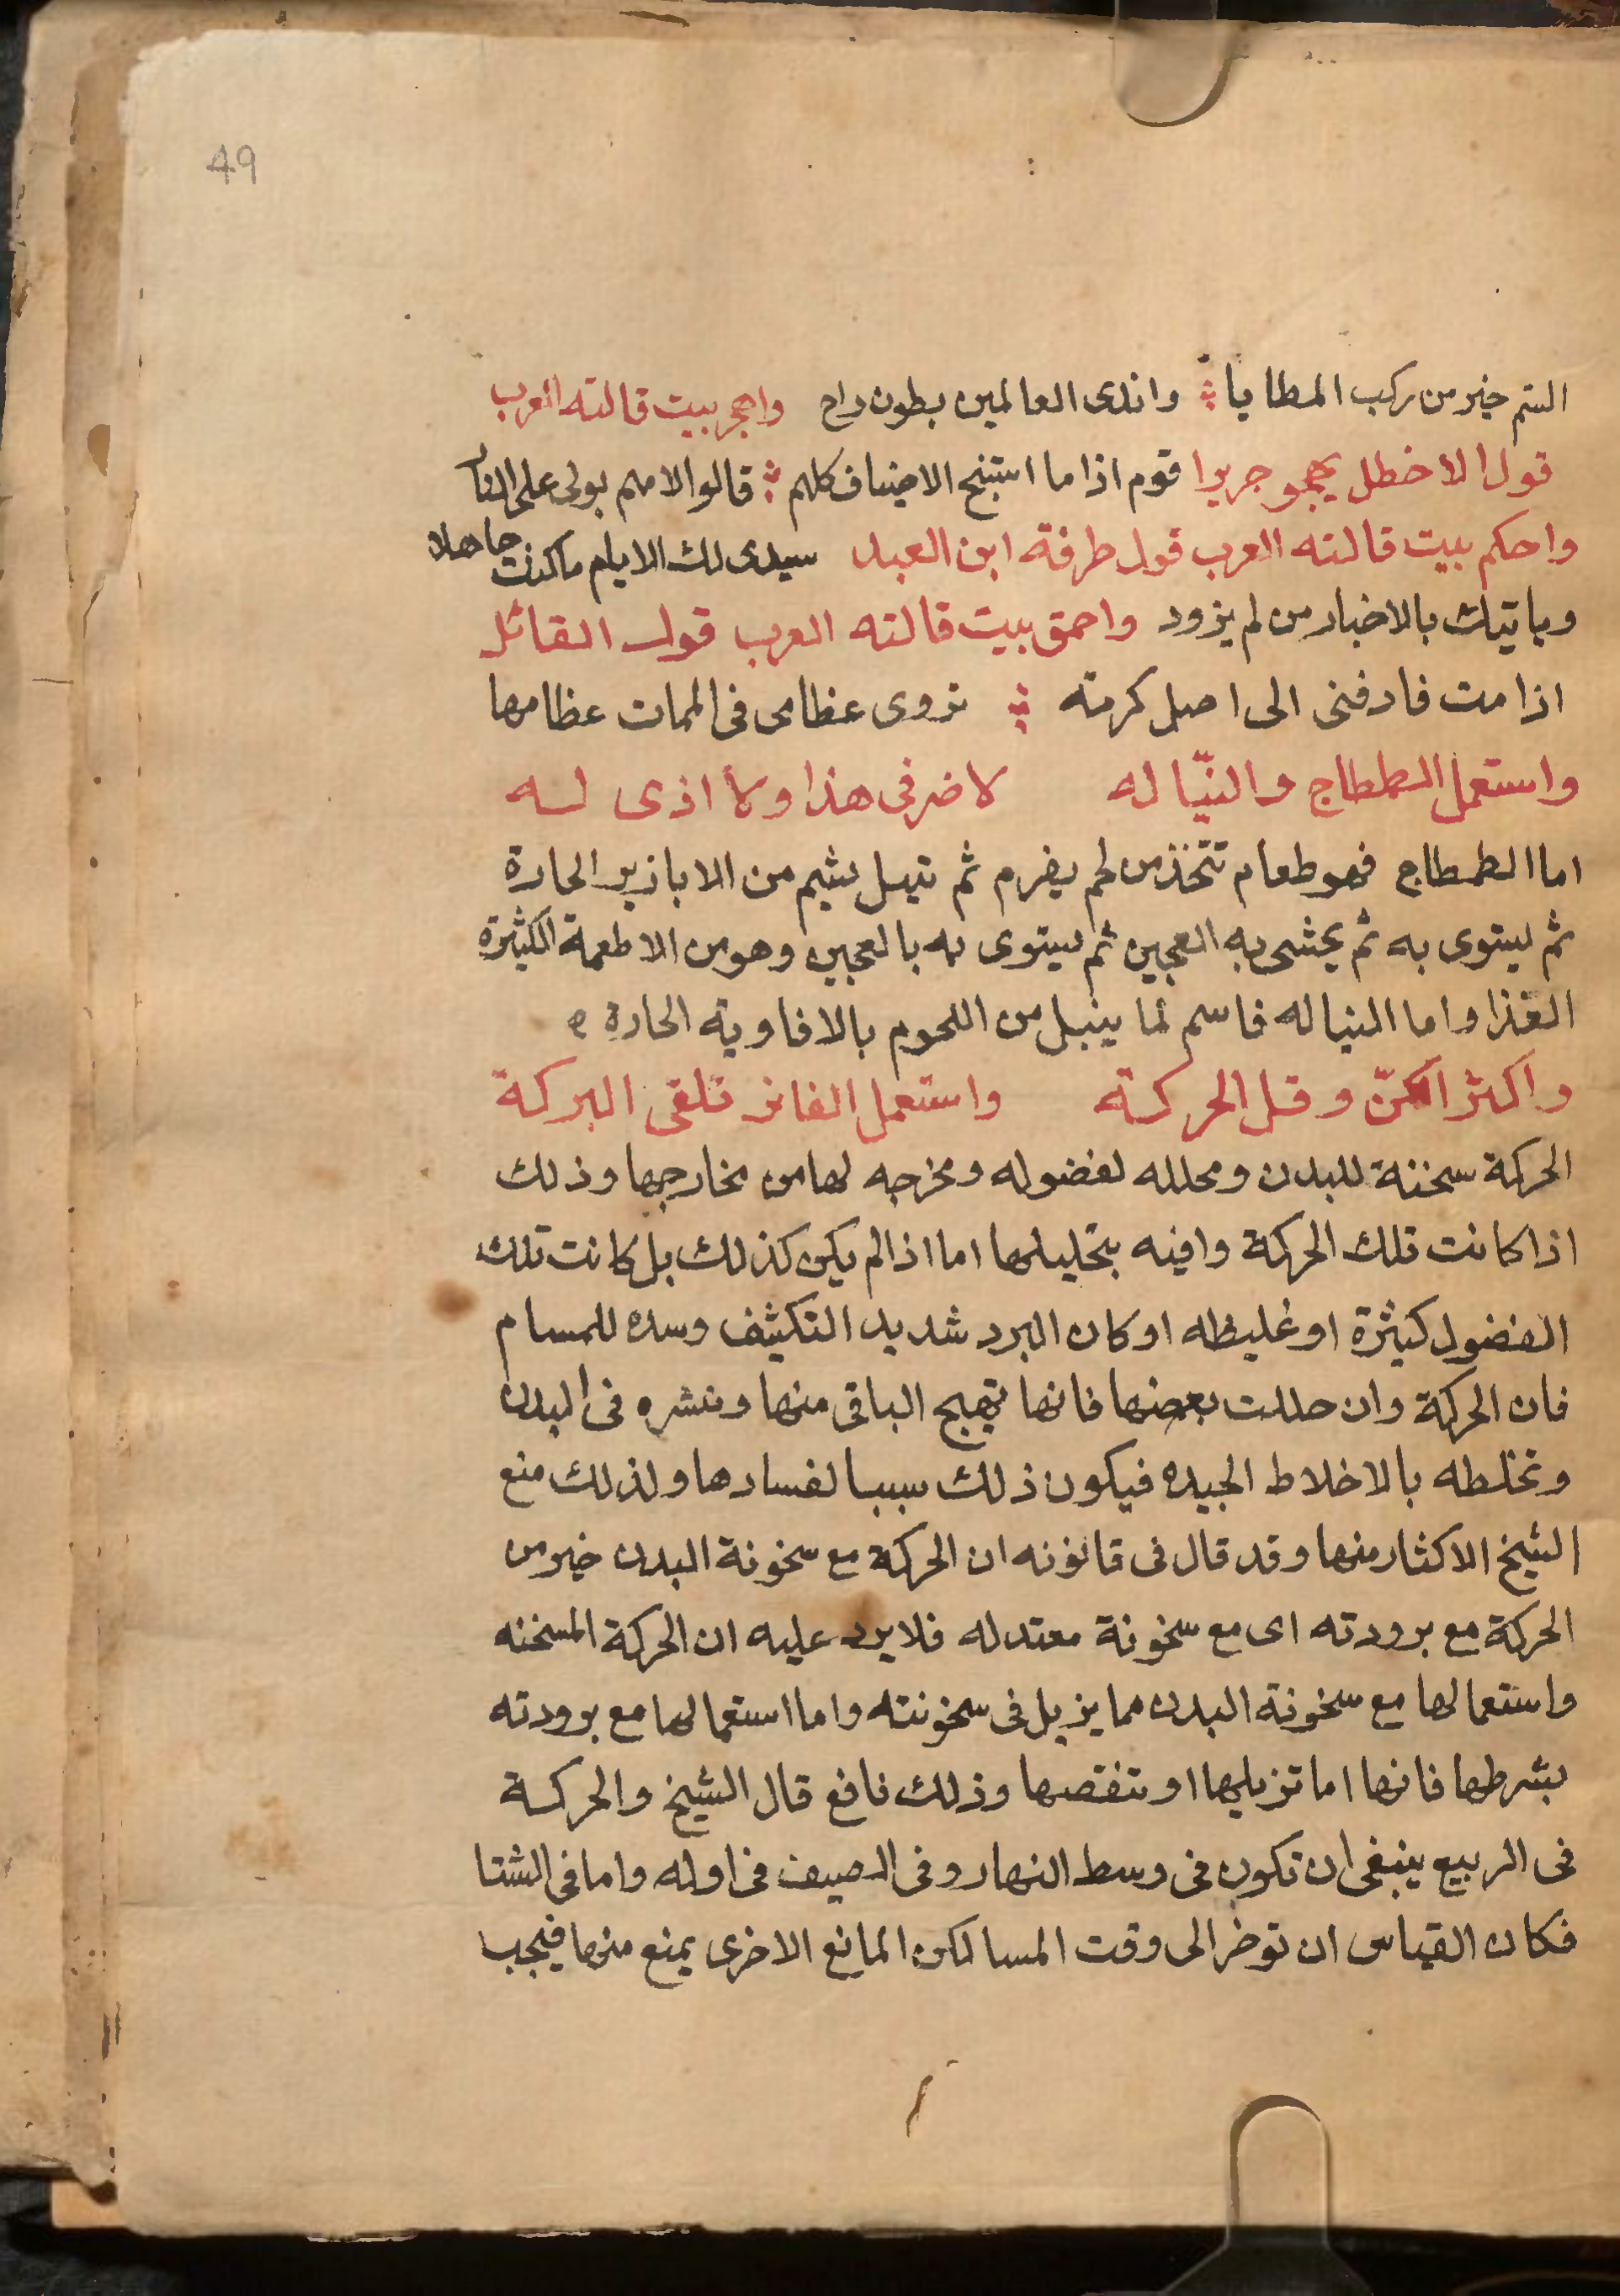 49
الستم خير من ركب المطايا واندى العالمين بطون راح واهجر بيت قالته العرب
قول الاخطل يهجو جريرا قوم اذا ما استنبح الاضياف كلهم قالوا لامهم بولى على النار
واحكم بيت قالته العرب قول طرفة ابن العبد سيبدى لك الايام ما كنت جاهلا
وياتيك بالاخبار من لم يزود واحمق بيت قالته العرب قول القائل
اذا مت فادفنى الى اصل كرمة تروى عظامى فى الممات عظامها
واستعمل الطماج والنبّاله لا ضر فى هذا ولا اذى له
اما الططماج فهو طعام تتخذ من لحم يفرم ثم تبل بشيم من الابازير الحارة
ثم يستوى به ثم يحشى به العجين ثم يستوى به بالعجين وهو من الاطعمة الكثيرة
الغذا واما النباله فاسم لما ينبل من اللحوم بالافاوية الحارة
واكثر الكنّ وقل الحركة واستعمل الفاتر تلقى البركة
الحركة سخنة للبدن ومحلله لفضوله ومخرجه لها من مخارجها وذلك
اذا كانت تلك الحركة وافيه بتحليلها اما اذا لم يكن كذلك بل كانت تلك
الفضول كثيرة او غليظه او كان البرد شديد التكثيف وسده للمسام
فان الحركة وان حللت بعضها فانها تهيج الباقى منها وتنشره فى البدن
وتخلطه بالاخلاط الجيده فيكون ذلك سببا لفسادها ولذلك منع
الشيخ الاكثار منها وقد قال فى قانونه ان الحركة مع سخونة البدن خير من
الحركة مع برودته اى مع سخونة معتدله فلا يرد عليه ان الحركة المسخنه
واستعمالها مع سخونة البدن مما يزيل فى سخونته واما استعمالها مع برودته
بشرطها فانها اما تزيلها او تنقصها وذلك نافع قال الشيخ والحركة
فى الربيع ينبغى ان تكون فى وسط النهار وفى الصيف فى اوله واما فى الشتا
فكان القياس ان توخر الى وقت المسا لكن المانع الاخرى يمنع منها فيجب